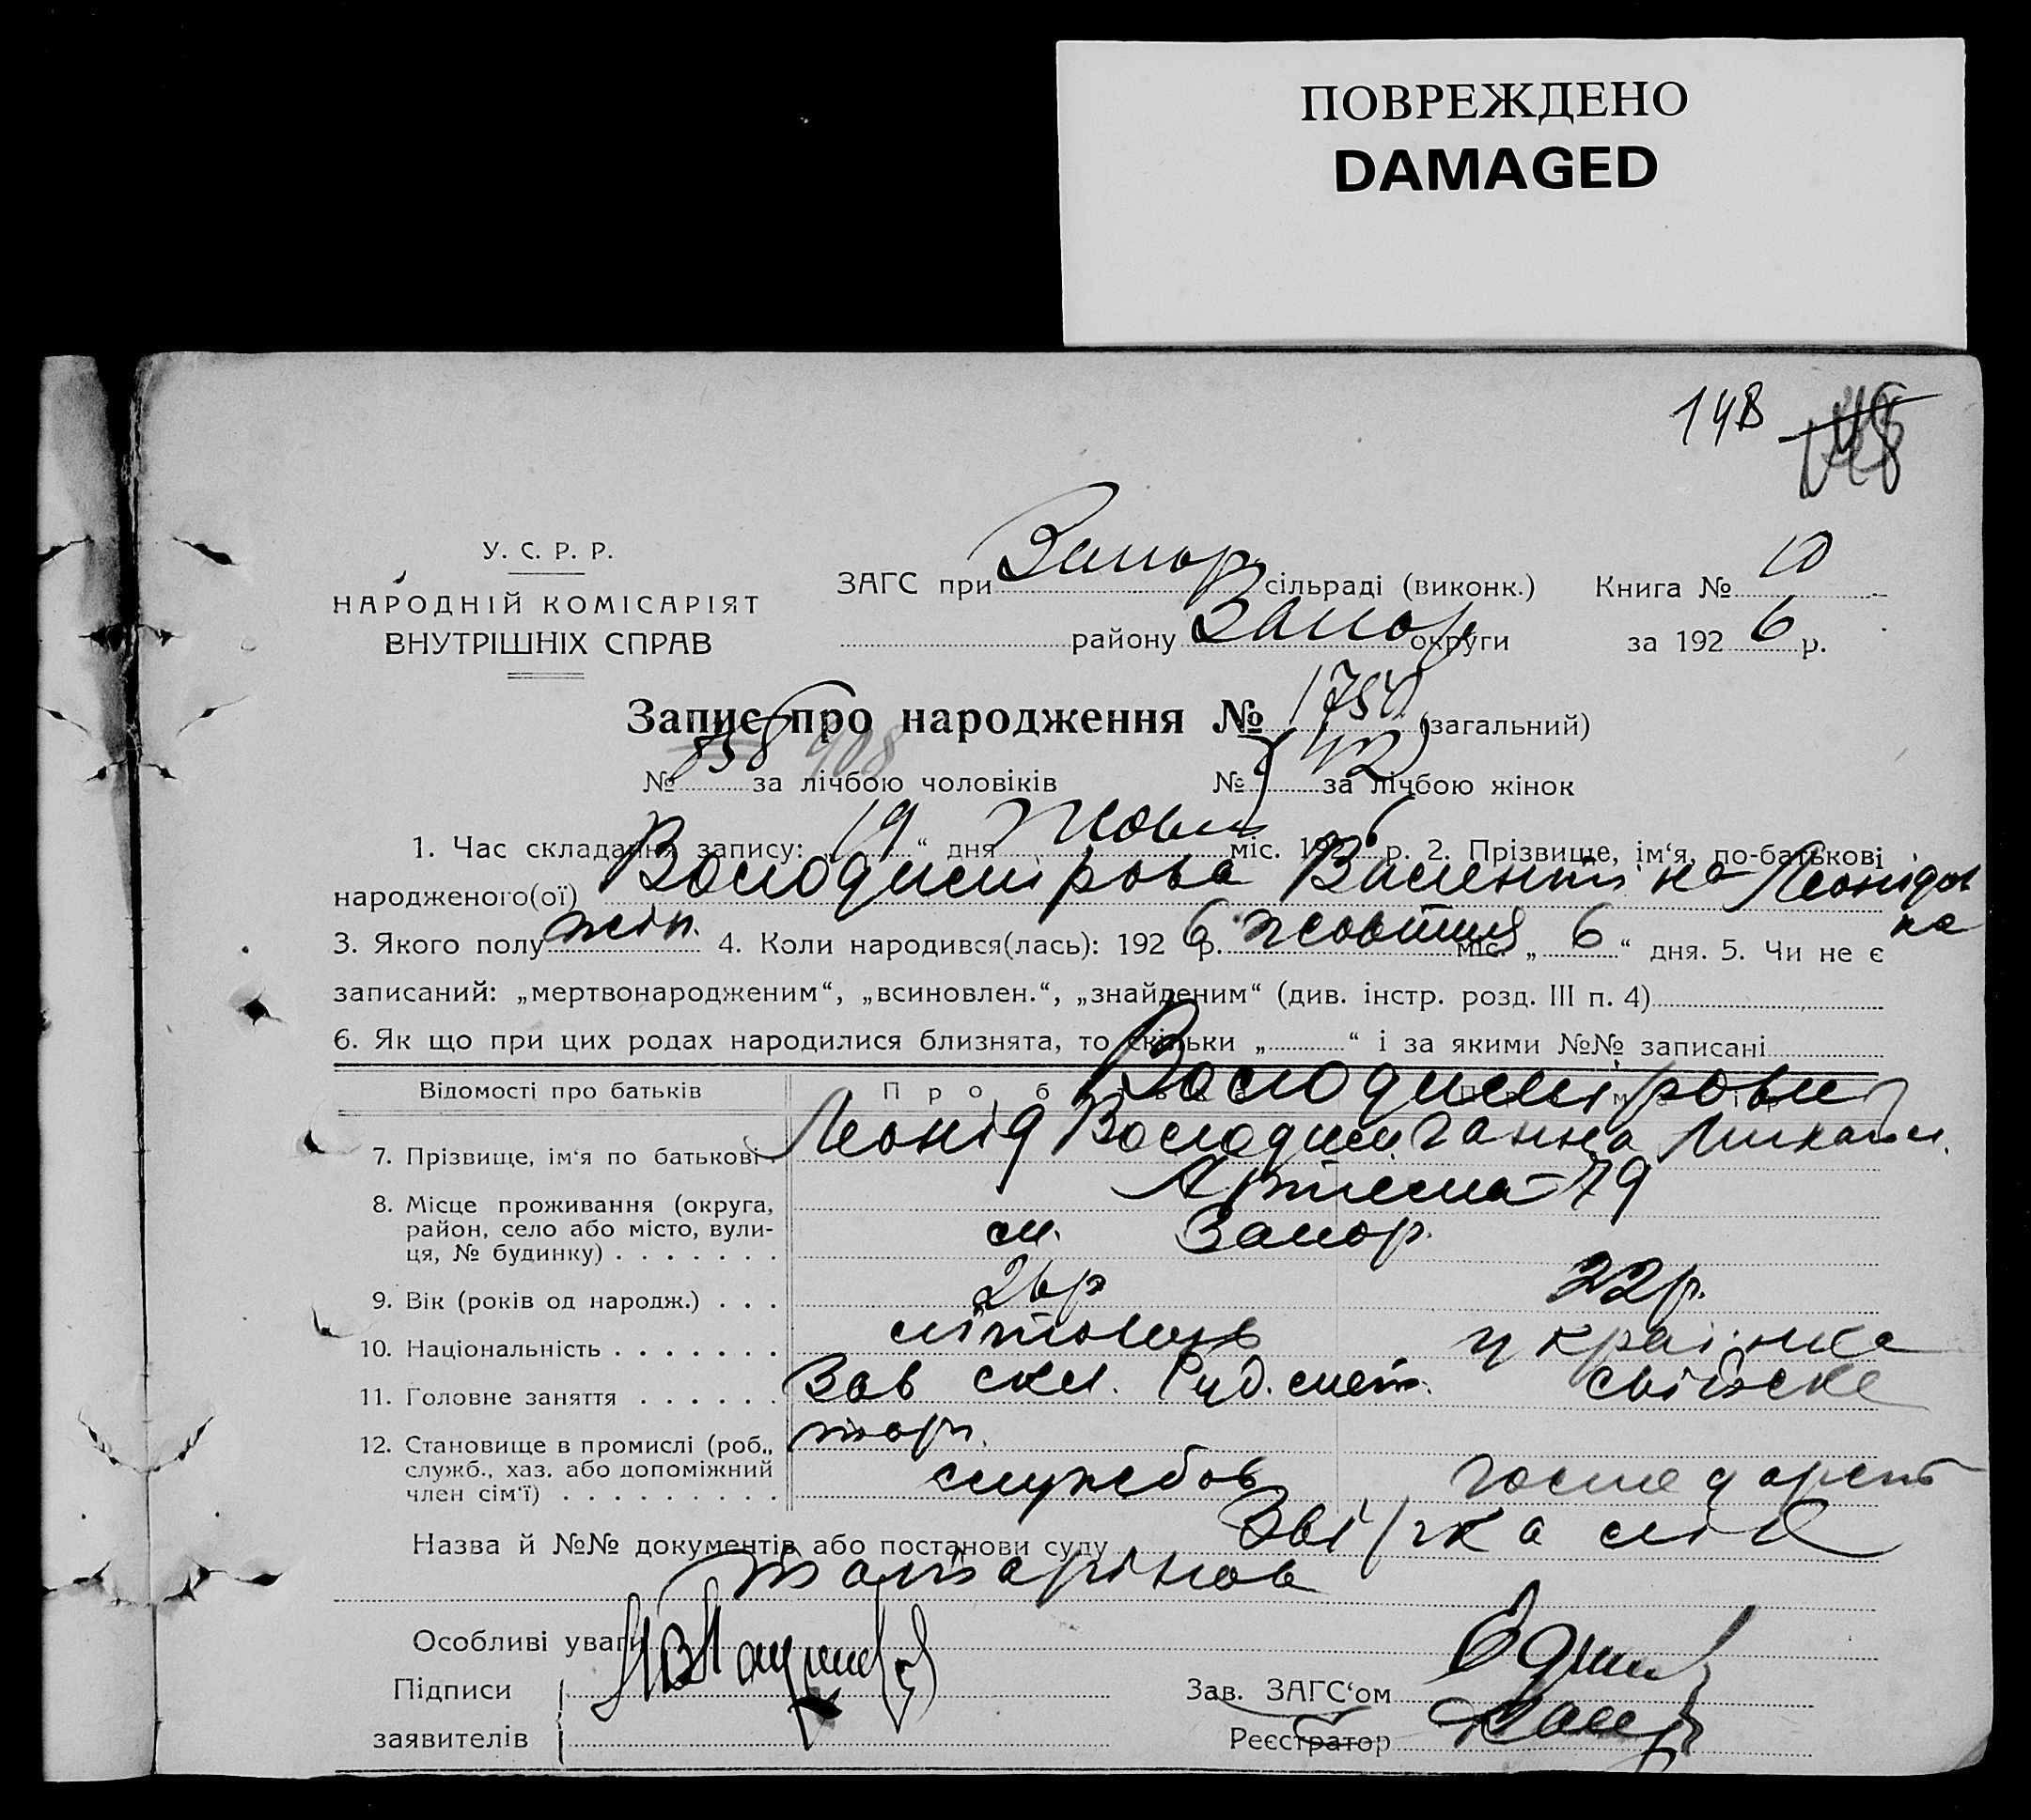 ПОВРЕЖДЕНО
DAMAGED
148
У. С. Р. Р.
НАРОДНІЙ КОМІСАРІЯТ
ВНУТРІШНІХ СПРАВ
ЗАГС при Запор сільраді (виконк.) Книга № 10
району Запор округи за 1926 р.
Запис про народження № (загальний)
№ 908 за лічбою чоловіків № за лічбою жінок
1. Час складання запису: „19“ дня Жовт міс. 1926 р. 2. Прізвище, ім‘я, по-батькові
народженого(ої) Володимірова Валентіна Леонідов
на
3. Якого полу жін. 4. Коли народився(лась): 1926 р. жовтня міс. „6“ дня. 5. Чи не є
записаний: „мертвонародженим“, „всиновлен.“, „знайденим“ (див. інстр. розд. III п. 4)
6. Як що при цих родах народилися близнята, то скільки „ “ і за якими №№ записані
Відомості про батьків Про батька Про матір
Володимірови
7. Прізвище, ім‘я по батькові. Леонід Володим. Ганна Михайл.
Артема 79
8. Місце проживання (округа, район, село або місто, вули-
ця, № будинку) . . . . . . . м. Запор.
9. Вік (років од народж.) . . . 26р 22р.
10. Національність . . . . . . . літовець українка
11. Головне заняття . . . . . . Зав скл. Руд. мет. свійське
торг.
12. Становище в промислі (роб., служб., хаз. або допоміжний
член сім‘ї) . . . . . . . . . службов господарст
Назва й №№ документів або постанови суду Звірка лік
Татарінова
Особливі уваги
Підписи
заявителів
Зав. ЗАГС‘ом
Реєстратор